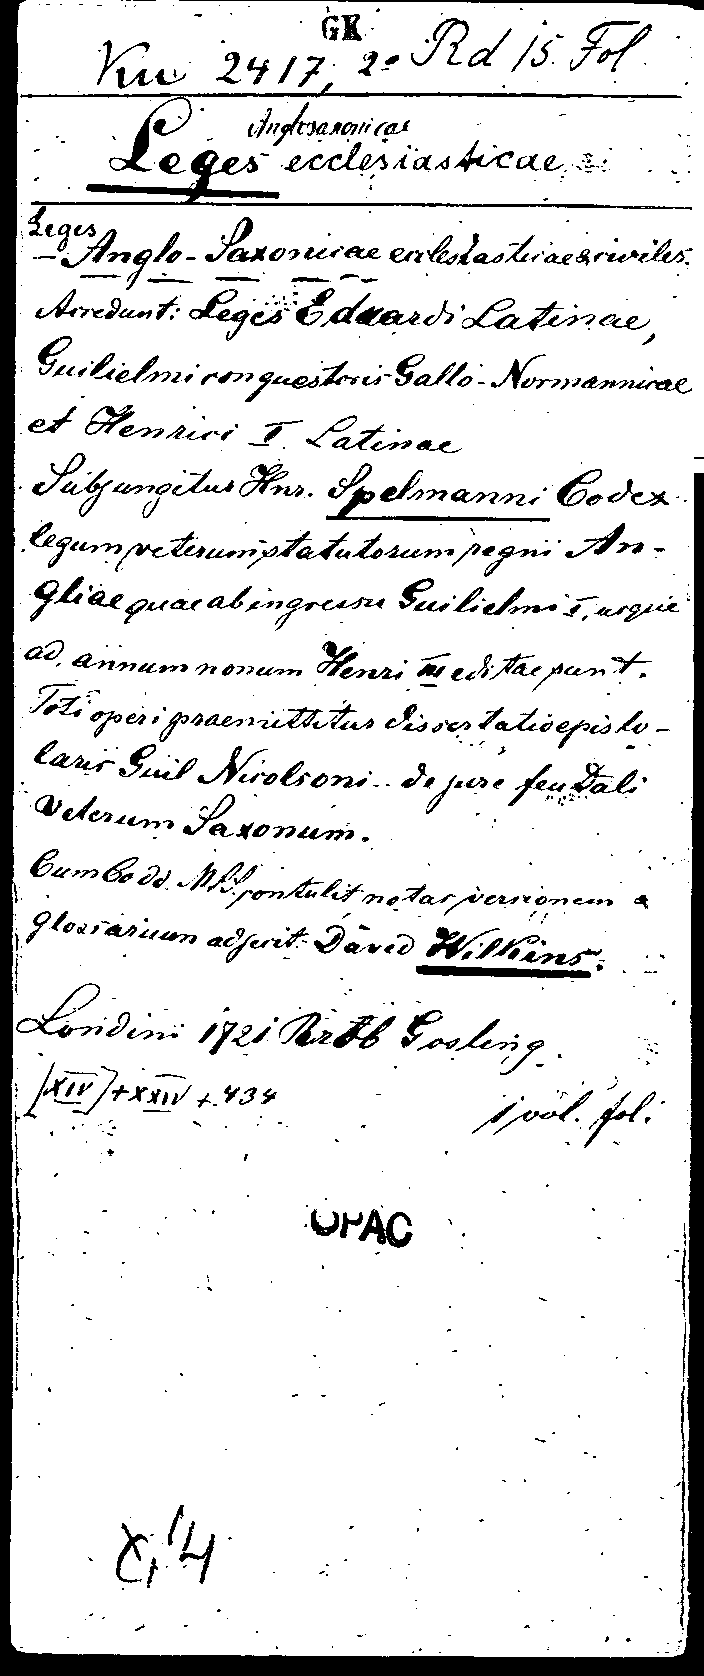 GK
Ku 2417, 2º Rd 15 Fol
Anglosaxonicae
Leges ecclesiasticae
Leges
— Anglo-Saxonicae ecclesiasticae & civiles.
Accedunt: Leges Eduardi Latinae,
Guilielmi conquestoris Gallo-Normannicae
et Henrici I Latinae
Subjungitur Hnr. Spelmanni Codex
legum veterum statutorum regni An-
gliae quae ab ingressu Guilielmi I, usque
ad annum nonum Henri III editae sunt.
Toti operi praemittitur dissertatio episto-
laris Guil Nicolsoni de jure feudali
veterum Saxonum.
Cum Codd. MSS contulit notas versionem a
glossarium adjecit David Wilkins.
Londini 1721 Gosling.
[XIV] + XXIV + 434
1 vol. fol.
OPAC
X,14